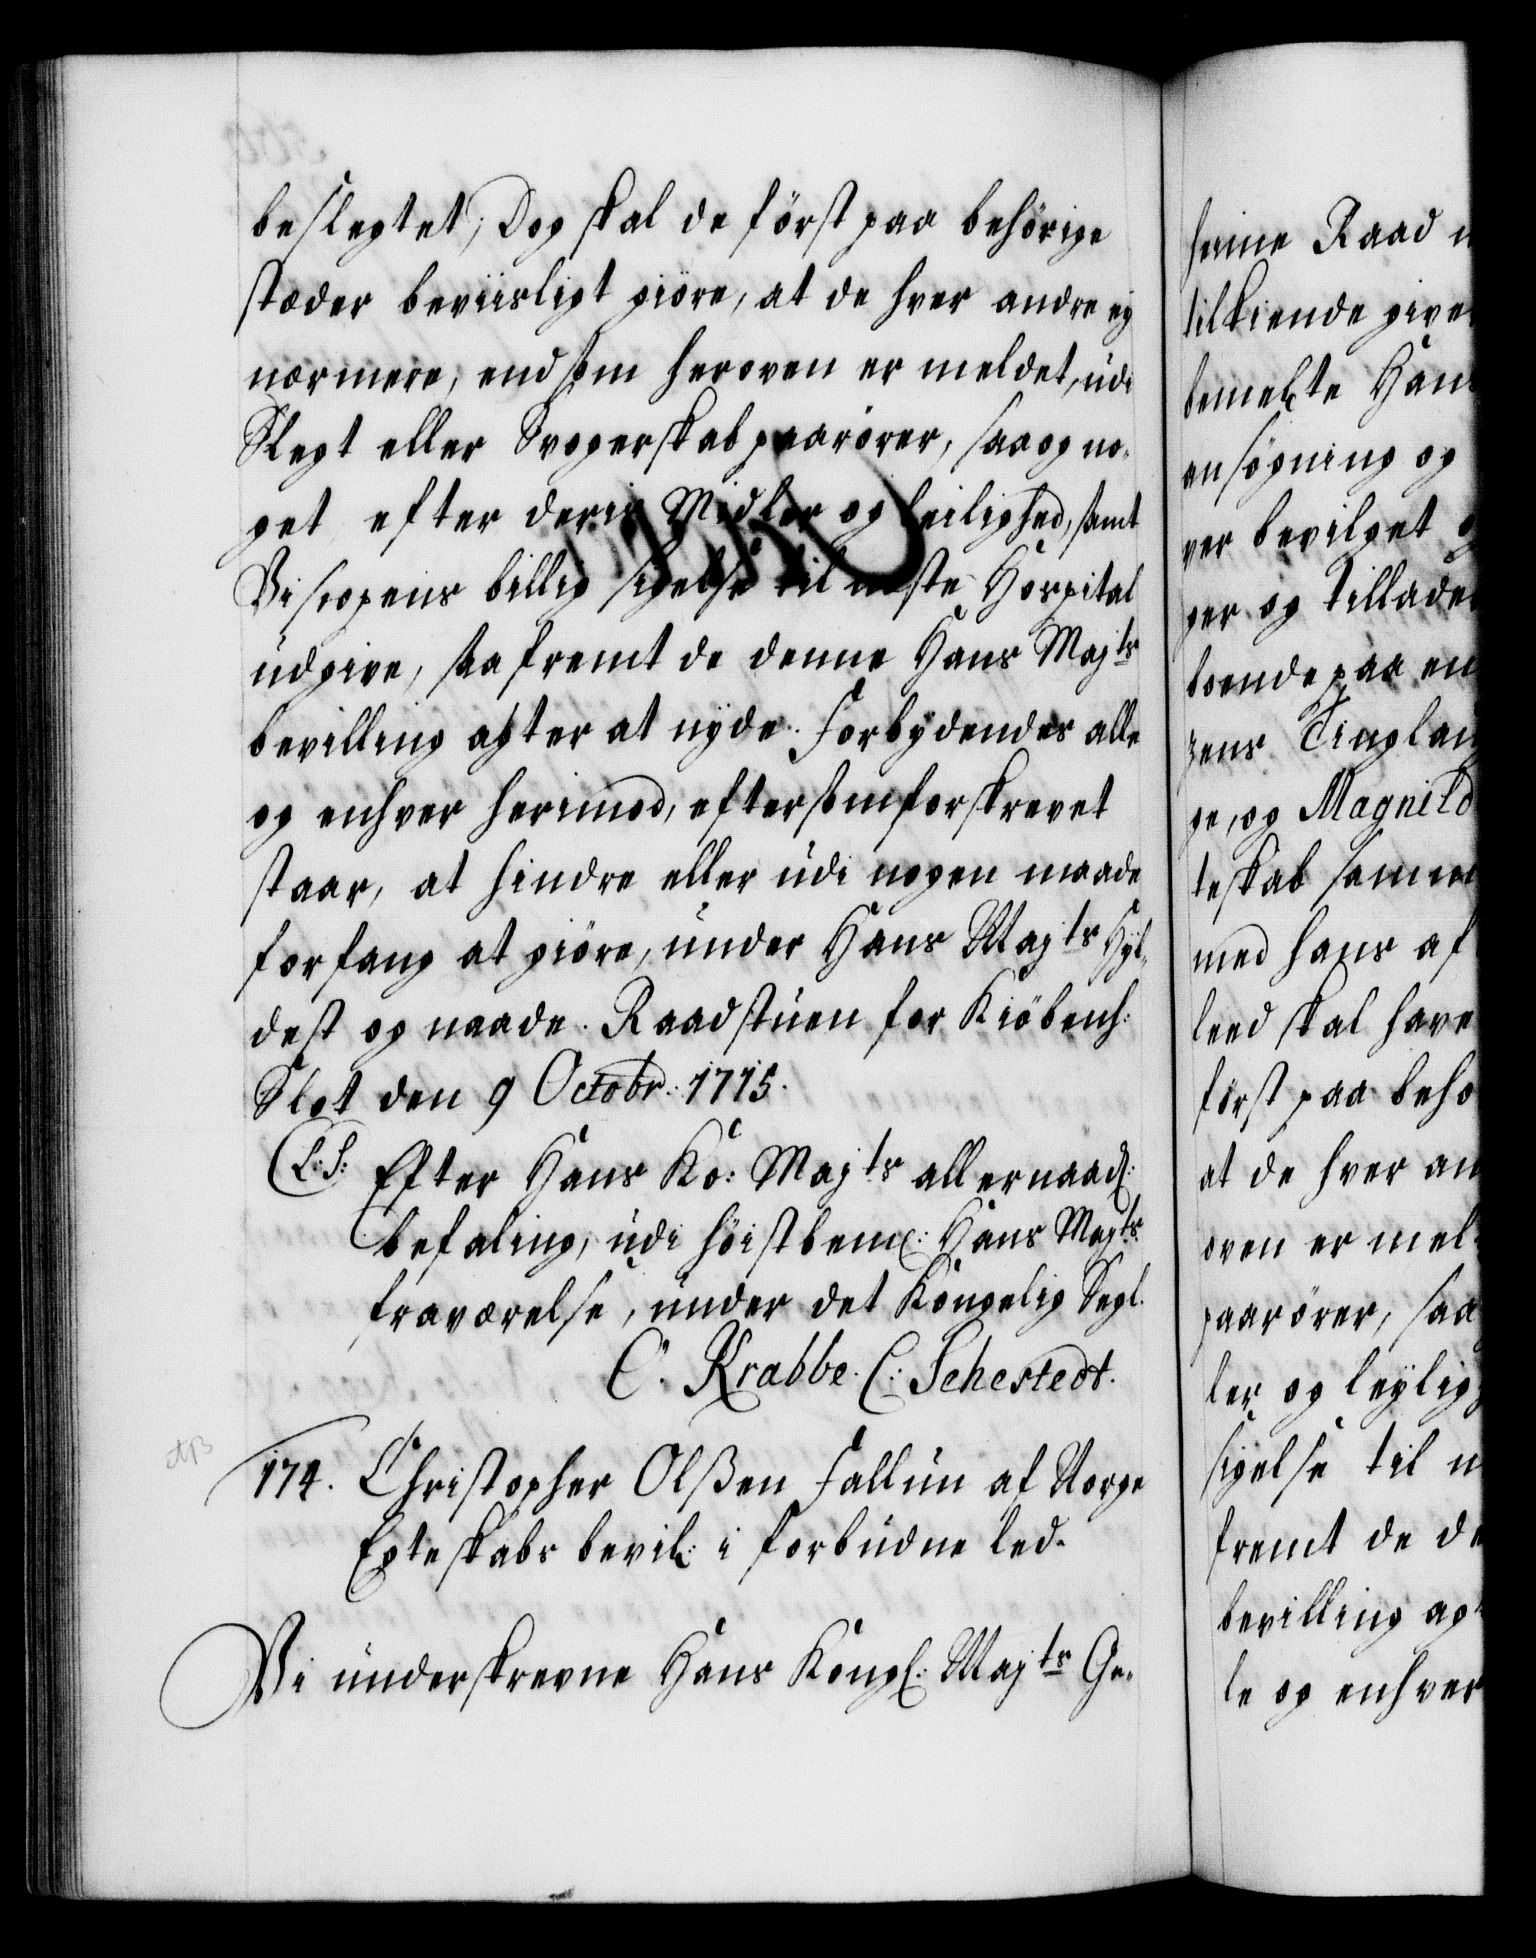 beslegtet; Dog skal de först paa behörige
stæder beviisligt giöre, at de hver andre ej
nærmere, end som heroven er meldet, udi
Slegt eller Svogerskab paarörer, saa og no-
get efter deris Midler og leilighed, samt
Biscopens billig sigelse til neste Hospital
udgive, saa fremt de denne Hans Majts
bevilling agter at nyde. Forbydendes alle
og enhver herimod, eftersom forskrevet
staar, at hindre eller udi nogen maade
forfang at giöre, under Hans Majts Hyl-
dest og naade. Raadstuen for Kiöbenh:
Slot den 9 Octobr: 1715.
(L:S: Efter Hans Ko: Majts allernaad:
befaling, udi höistbem: Hans Majts
fraværelse, under det Kongelig Segl.
C. Krabbe. C: Sehestedt.
174. Christopher Olßen Fallun af Norge
Egteskabs bevil: i forbudne led.
Vi underskrevne Hans Kongl: Majts Ge-
heime Raad
tilkiende give
bemelte Han
ansögning og
ver bevilget
ger og tillade
boende paa en
zens Tinglau
ge, og Magnild
teskab samm
med hans af
leed skal have
först paa behö
at de hver an
oven er mel
paarörer, saa
ler og leylig
sigelse til n
fremt de de
bevilling ag
le og enhver